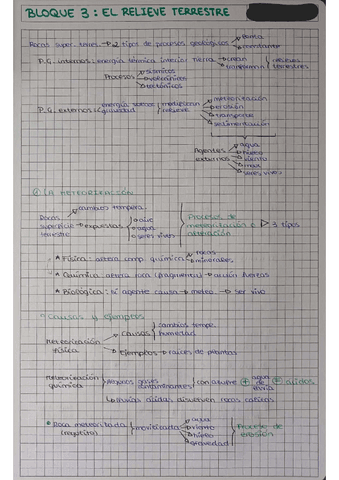 BLOQUE 3: EL RELIEVE TERRESTRE
Rocas super. terres. → 2 tipos de procesos geológicos
P.G. internos: energía térmica interior tierra crean relieves
transforman terrestres
Procesos sísmicos
volcánicos
tectónicos
P.G. externos: energía modifican meteorización
gravedad relieve erosión
transporte
sedimentación
Agentes externos agua
hielo
viento
mar
seres vivos
LA METEORIZACIÓN
cambios tempera.
Rocas superficie terrestre → expuestas aire
agua
seres vivos
Procesos de meteorización o alteración ▷ 3 tipos
* Física: altera comp. química rocas
minerales
* Química: altera roca (fragmenta) → acción fuerzas
* Biológica: si agente causa → meteo. → ser vivo
Causas y ejemplos
Meteorización física causas cambios tempe.
humedad
ejemplos → raíces de plantas
Meteorización química algunos gases contaminantes con azufre + agua de lluvia = ácidos
lluvias ácidas disuelven rocas
Roca meteorizada (regolito) → movilizada agua
viento
hielo
gravedad
Proceso de erosión